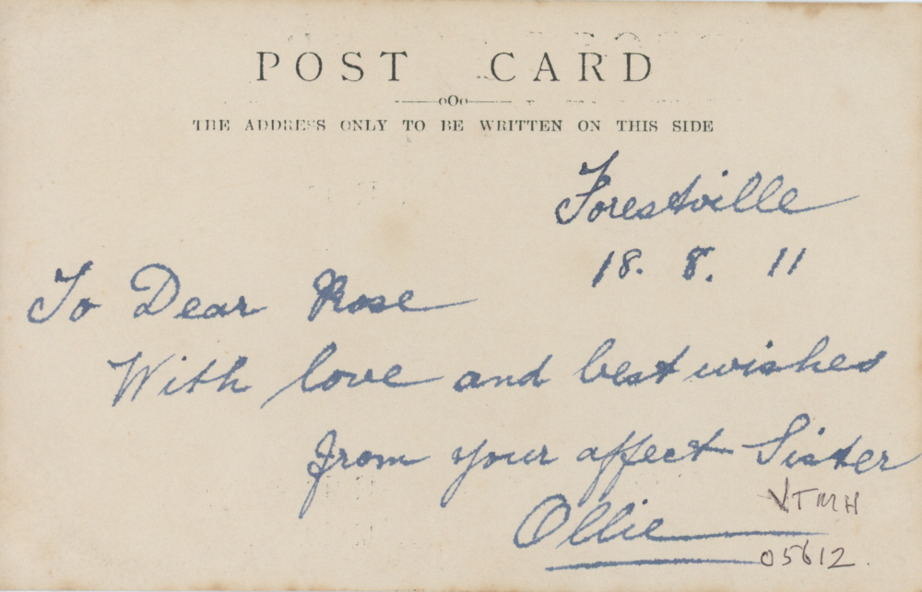 POST CARD
oOo
THE ADDRESS ONLY TO BE WRITTEN ON THIS SIDE
Forestville
18. 8. 11
To Dear Rose
With love and best wishes
from your affect Sister
Ollie
VTMH
05612.